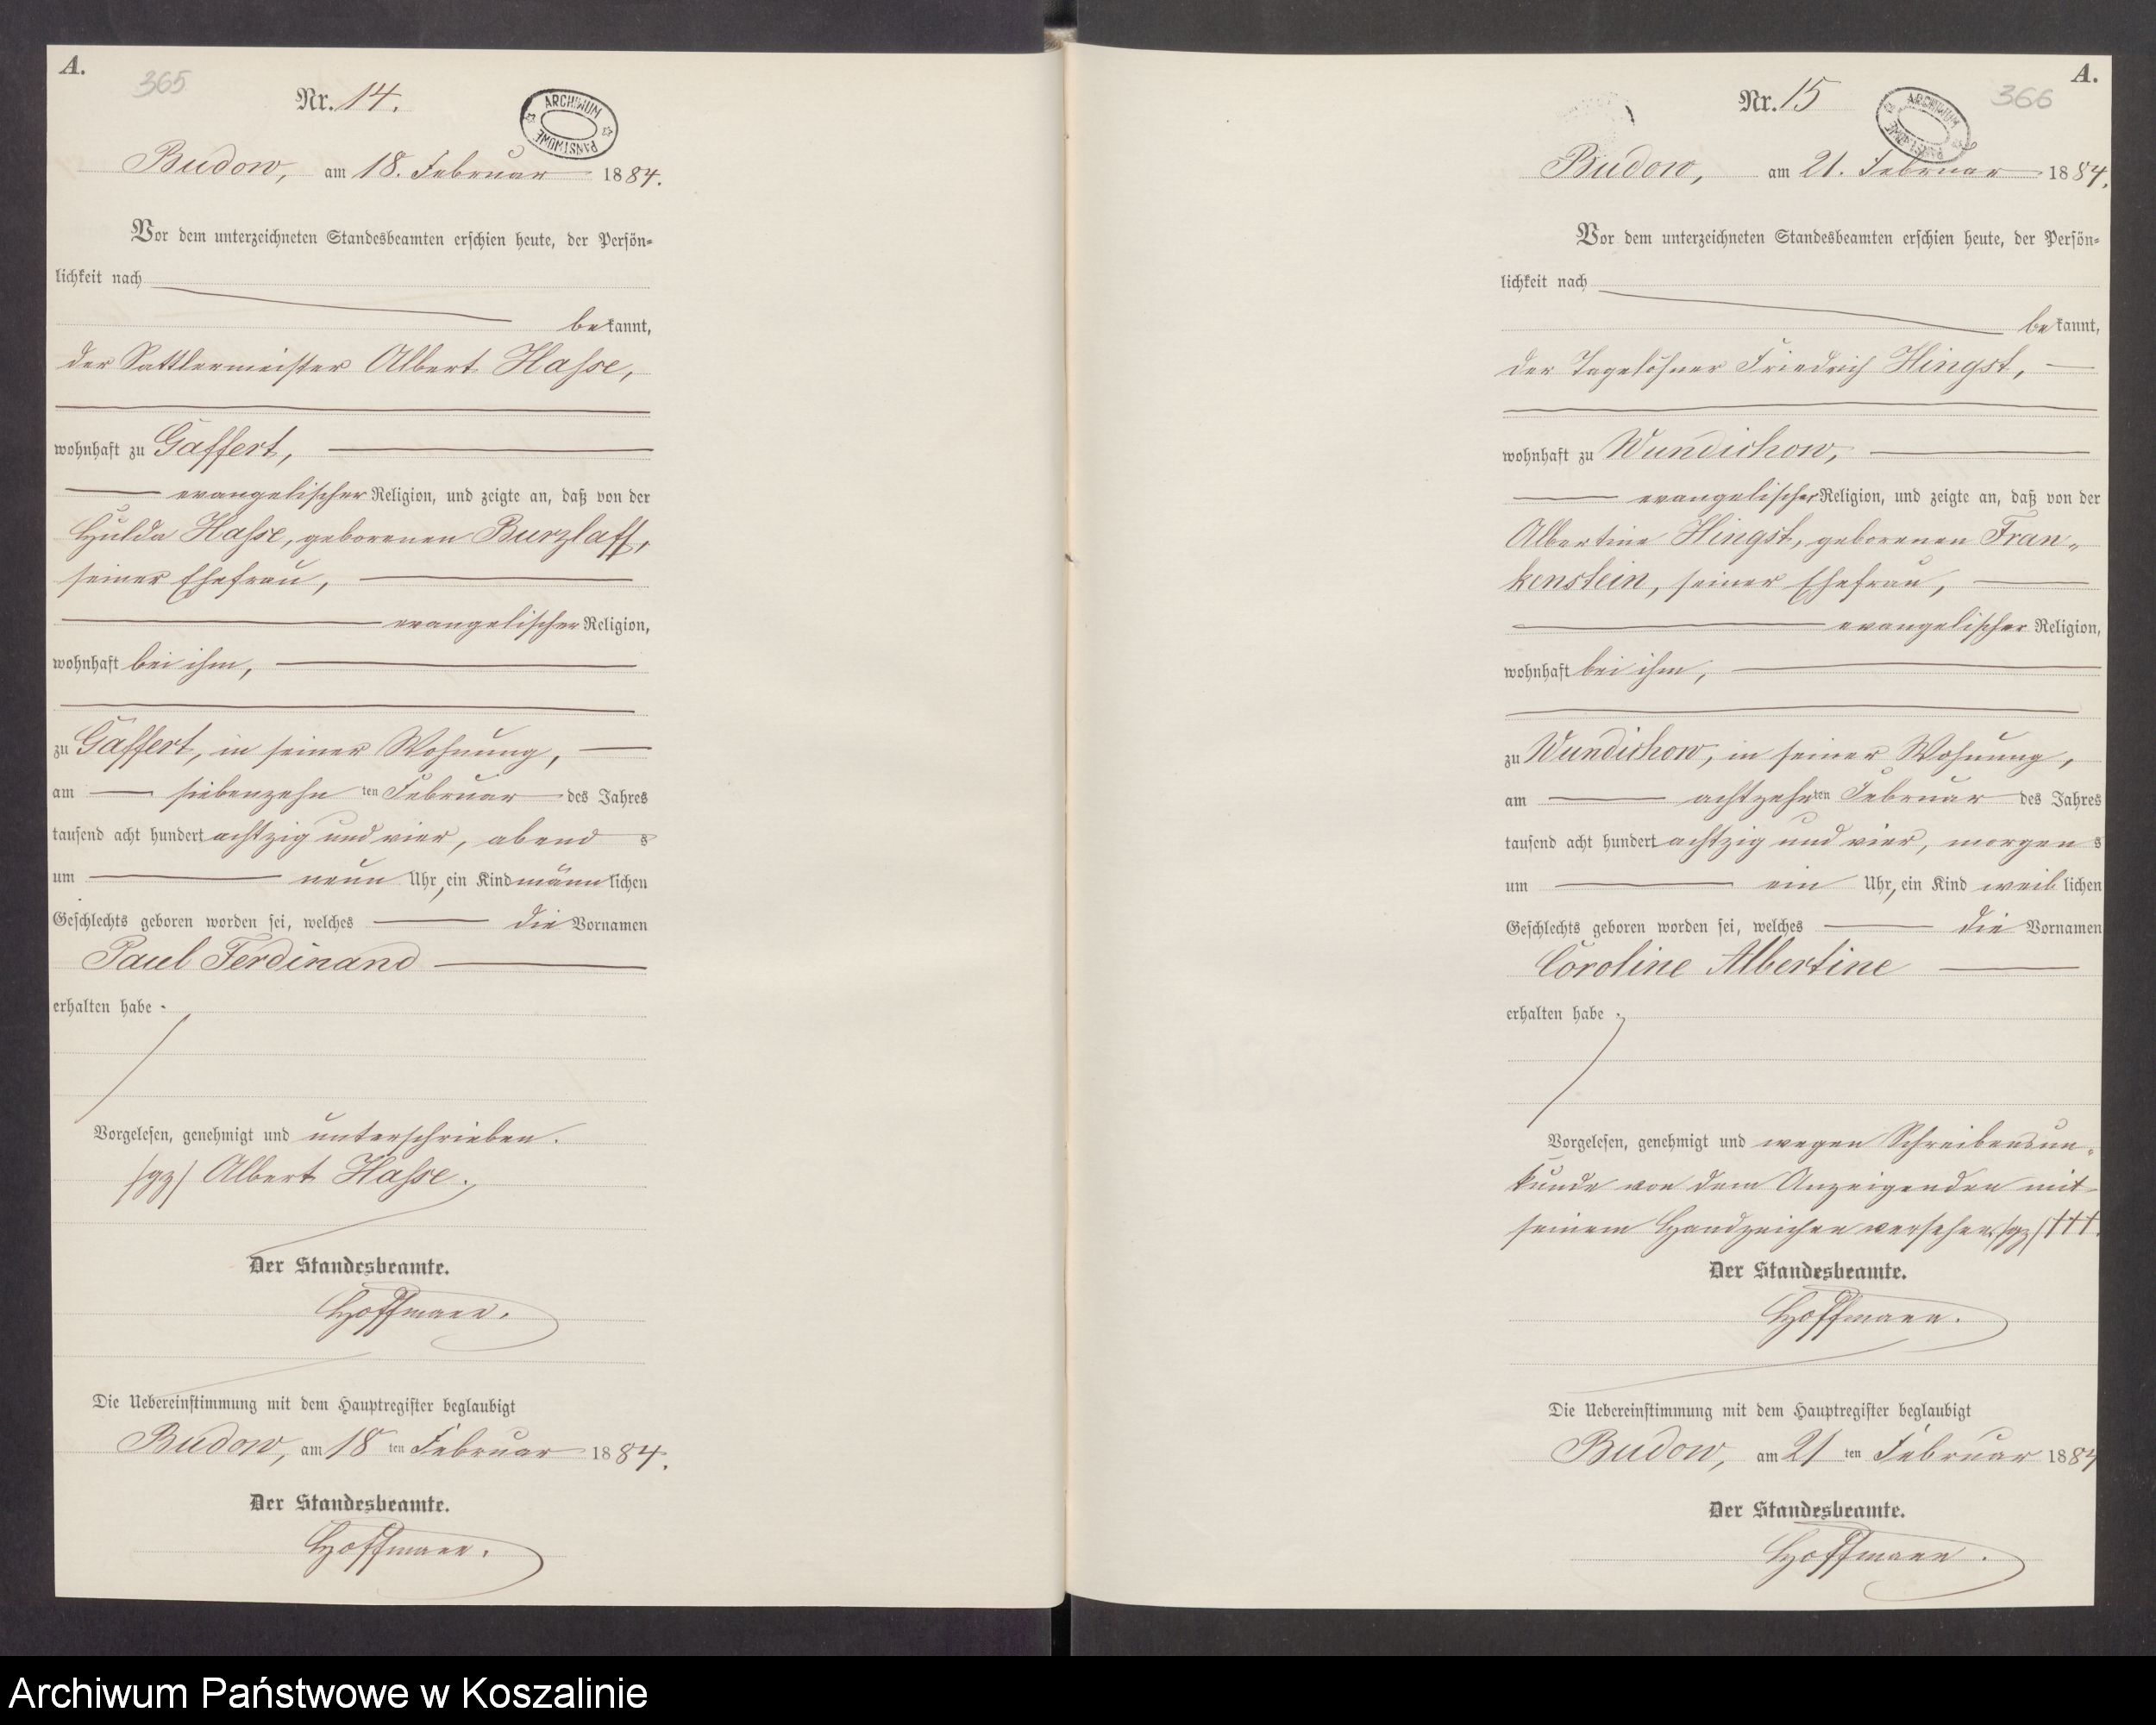 A.
365
Nr. 14.
ARCHIWUM PAŃSTWOWE
Budow, am 18. Februar 1884.
Vor dem unterzeichneten Standesbeamten erschien heute, der Persön-
lichkeit nach
bekannt,
der Sattlermeister Albert Hasse,
wohnhaft zu Gaffert,
evangelischer Religion, und zeigte an, daß von der
Hulda Hasse, geborenen Burzlaff,
seiner Ehefrau,
evangelischer Religion,
wohnhaft bei ihm,
zu Gaffert, in seiner Wohnung,
am siebenzehn ten Februar des Jahres
tausend acht hundert achtzig und vier, abends
um neun Uhr, ein Kind männlichen
Geschlechts geboren worden sei, welches die Vornamen
Paul Ferdinand
erhalten habe.
Vorgelesen, genehmigt und unterschrieben.
/gz/ Albert Hasse.
Der Standesbeamte.
Hoffmann.
Die Uebereinstimmung mit dem Hauptregister beglaubigt
Budow, am 18 ten Februar 1884.
Der Standesbeamte.
Hoffmann.
A.
366
Nr. 15
ARCHIWUM PAŃSTWOWE
Budow, am 21. Februar 1884.
Vor dem unterzeichneten Standesbeamten erschien heute, der Persön-
lichkeit nach
bekannt,
der Tagelöhner Friedrich Hingst,
wohnhaft zu Wundichow,
evangelischer Religion, und zeigte an, daß von der
Albertine Hingst, geborenen Fran-
kenstein, seiner Ehefrau,
evangelischer Religion,
wohnhaft bei ihm,
zu Wundichow, in seiner Wohnung,
am achtzehnten Februar des Jahres
tausend acht hundert achtzig und vier, morgens
um ein Uhr, ein Kind weiblichen
Geschlechts geboren worden sei, welches die Vornamen
Caroline Albertine
erhalten habe.
Vorgelesen, genehmigt und wegen Schreibensun-
kunde von dem Anzeigenden mit
seinem Handzeichen versehen. /gz/ †††.
Der Standesbeamte.
Hoffmann.
Die Uebereinstimmung mit dem Hauptregister beglaubigt
Budow, am 21 ten Februar 1884
Der Standesbeamte.
Hoffmann.
Archiwum Państwowe w Koszalinie